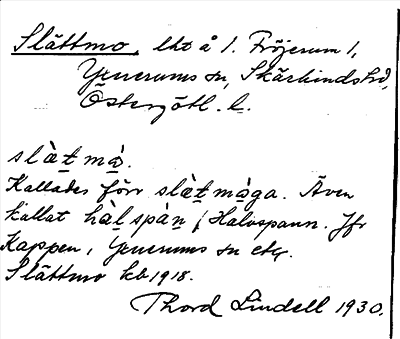 Slättmo, lht å 1. Fröjerum 1,
Yxnerums sn, Skärkinds hd,
Östergötl. l.
slä̀t må̀.
Kallades förr slä̀t måga. Även
kallat hàl spàn / Halvspann. Jfr
Kappen, Yxnerums sn etc.
Slättmo kb 1918.
Thord Lindell 1930.